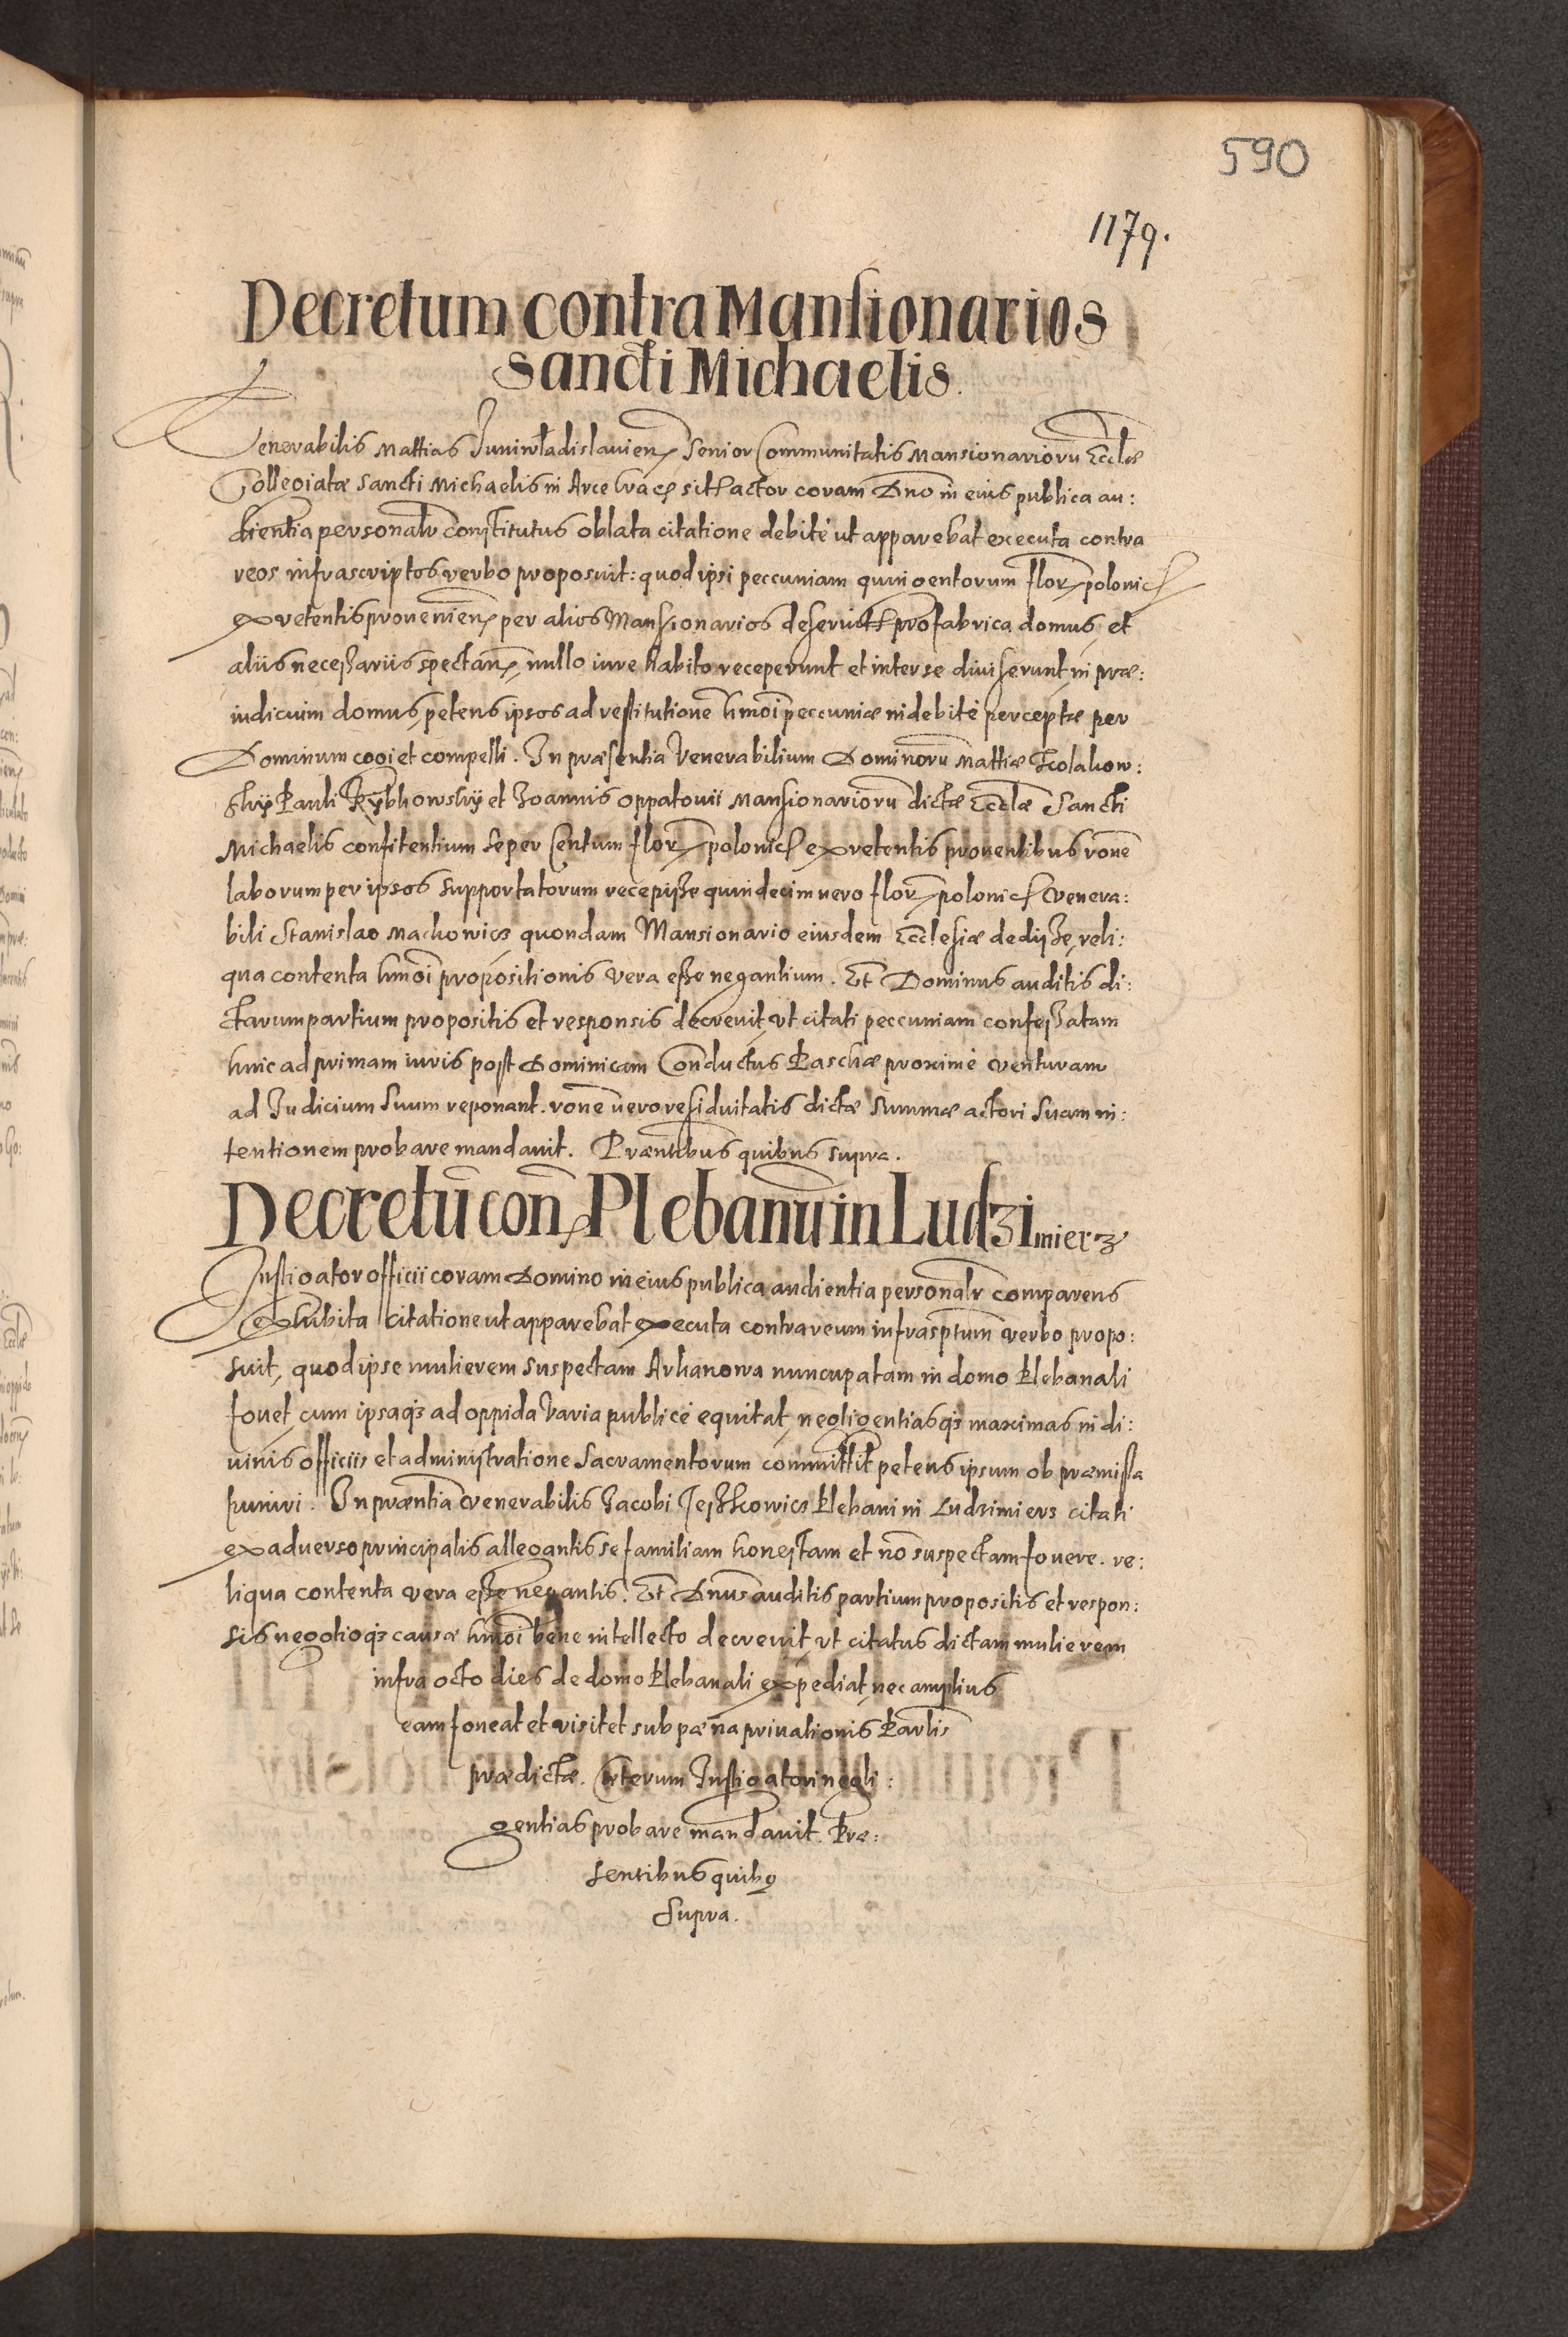 590
1179.
Decretum contra Mansionarios
sancti Michaelis.
Venerabilis Mattias Juniwladislavien Senior Communitatis Mansionarioru Eccl̃æ
Collegiatæ Sancti Michaelis in Arce Crac sit actor coram Dno in eius publica au:
dientia personalr constitutus oblata citatione debitè ut apparebat executa contra
reos infrascriptos verbo proposuit: quod ipsi peccuniam quingentorum flor polonic
ex retentis provenien per alios Mansionarios deservit pro fabrica domus et
aliis necessariis spectan, nullo iure habito receperunt et inter se diviserunt in præ:
iudicium domus, petens ipsos ad restitutionẽ hmõi peccuniæ indebitè perceptæ per
Dominum cogi et compelli. In præsentia Venerabilium Dominorũ Mattiæ
Pauli et Joannis Oppatovii Mansionariorũ dictæ Eccl̃æ Sancti
Michaelis confitentium se per Centum flor polonic ex retentis proventibus rõne
laborum per ipsos supportatorum recepisse quindecim vero flor polonic Venera:
bili Stanislao Machowicz quondam Mansionario eiusdem Ecclesiæ dedisse, reli:
qua contenta hmõi propositionis vera esse negantium. Et Dominus auditis di:
ctarum partium propositis et responsis decrevit, ut citati peccuniam confessatam
hinc ad primam iuris post Dominicam Conductus Paschæ proximè venturam
ad Judicium suum reponant. rõne vero residuitatis dictæ summæ actori suam in:
tentionem probare mandavit. Præntibus quibus supra.
Decretũ con Plebanũ in Ludzimierz
Instigator officii coram Domino in eius publica audientia personalr comparens
exhibita citatione ut apparebat executa contra reum infrasptum verbo propo:
suit, quod ipse mulierem suspectam Arhanowa nuncupatam in domo plebanali
fovet, cum ipsaq3 ad oppida varia publicè equitat, negligentiasq3 maximas in di:
vinis officiis et administratione Sacramentorum committit petens ipsum ob præmissa
puniri. In præntia Venerabilis Jacobi plebani in Ludzimierz citati
ex adverso principalis allegantis se familiam honestam et nõ suspectam fovere. re:
liqua contenta vera esse negantis. Et Dnus auditis partium propositis et respon:
sis negotioq3 causæ hmõi bene intellecto decrevit, ut citatus dictam mulierem
infra octo dies de domo plebanali expediat, nec amplius
eam foveat et visitet sub pæna privationis Parlis
prædictæ. Cæterum Instigatori negli:
gentias probare mandavit. Præ:
sentibus quibq
supra.